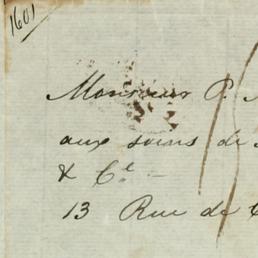 1601
Monsieur P.
aux soins de
& Cie
13 Rue de